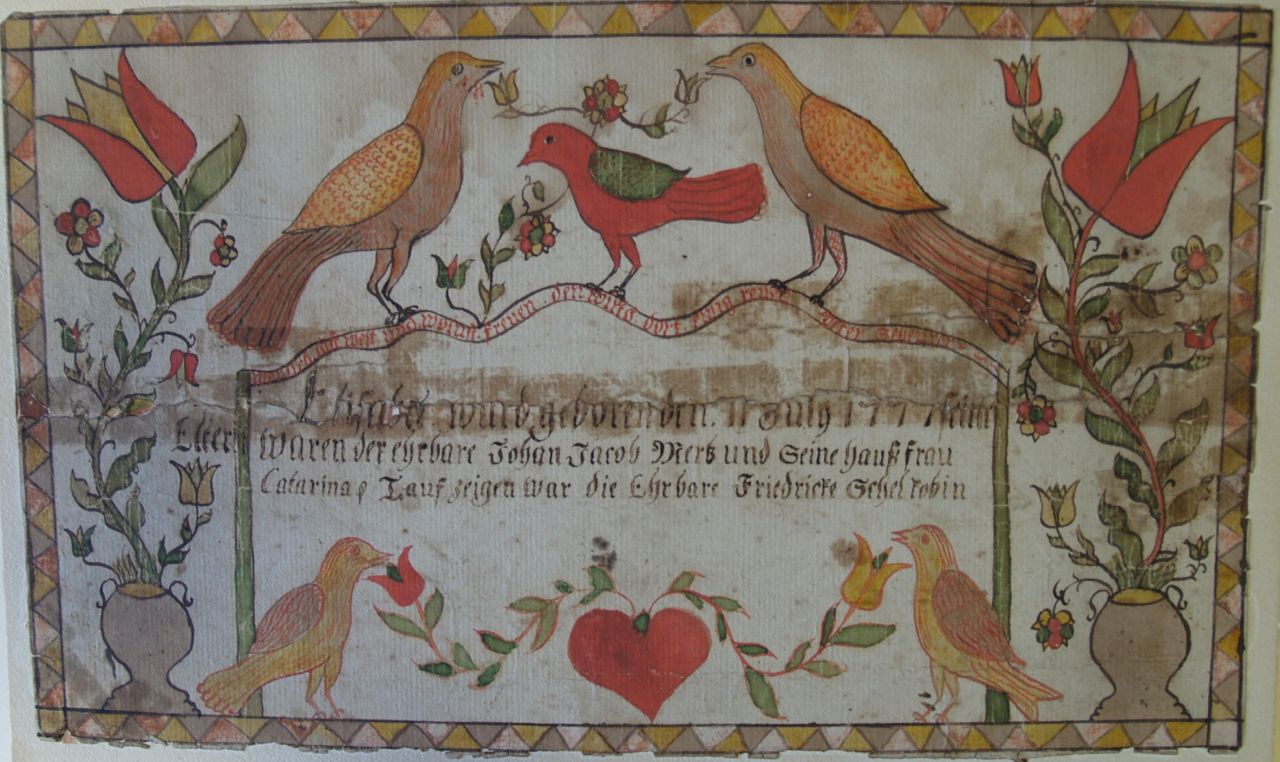 und worin freuen der wird dort ewig
Elisabet wurd geboren den 11 July 1777 seine
Eltern waren der ehrbare Johan Jacob Mertz und Seine hauß frau
Catarina Tauf zeigen war die Ehrbare Friedricke Schelkobin